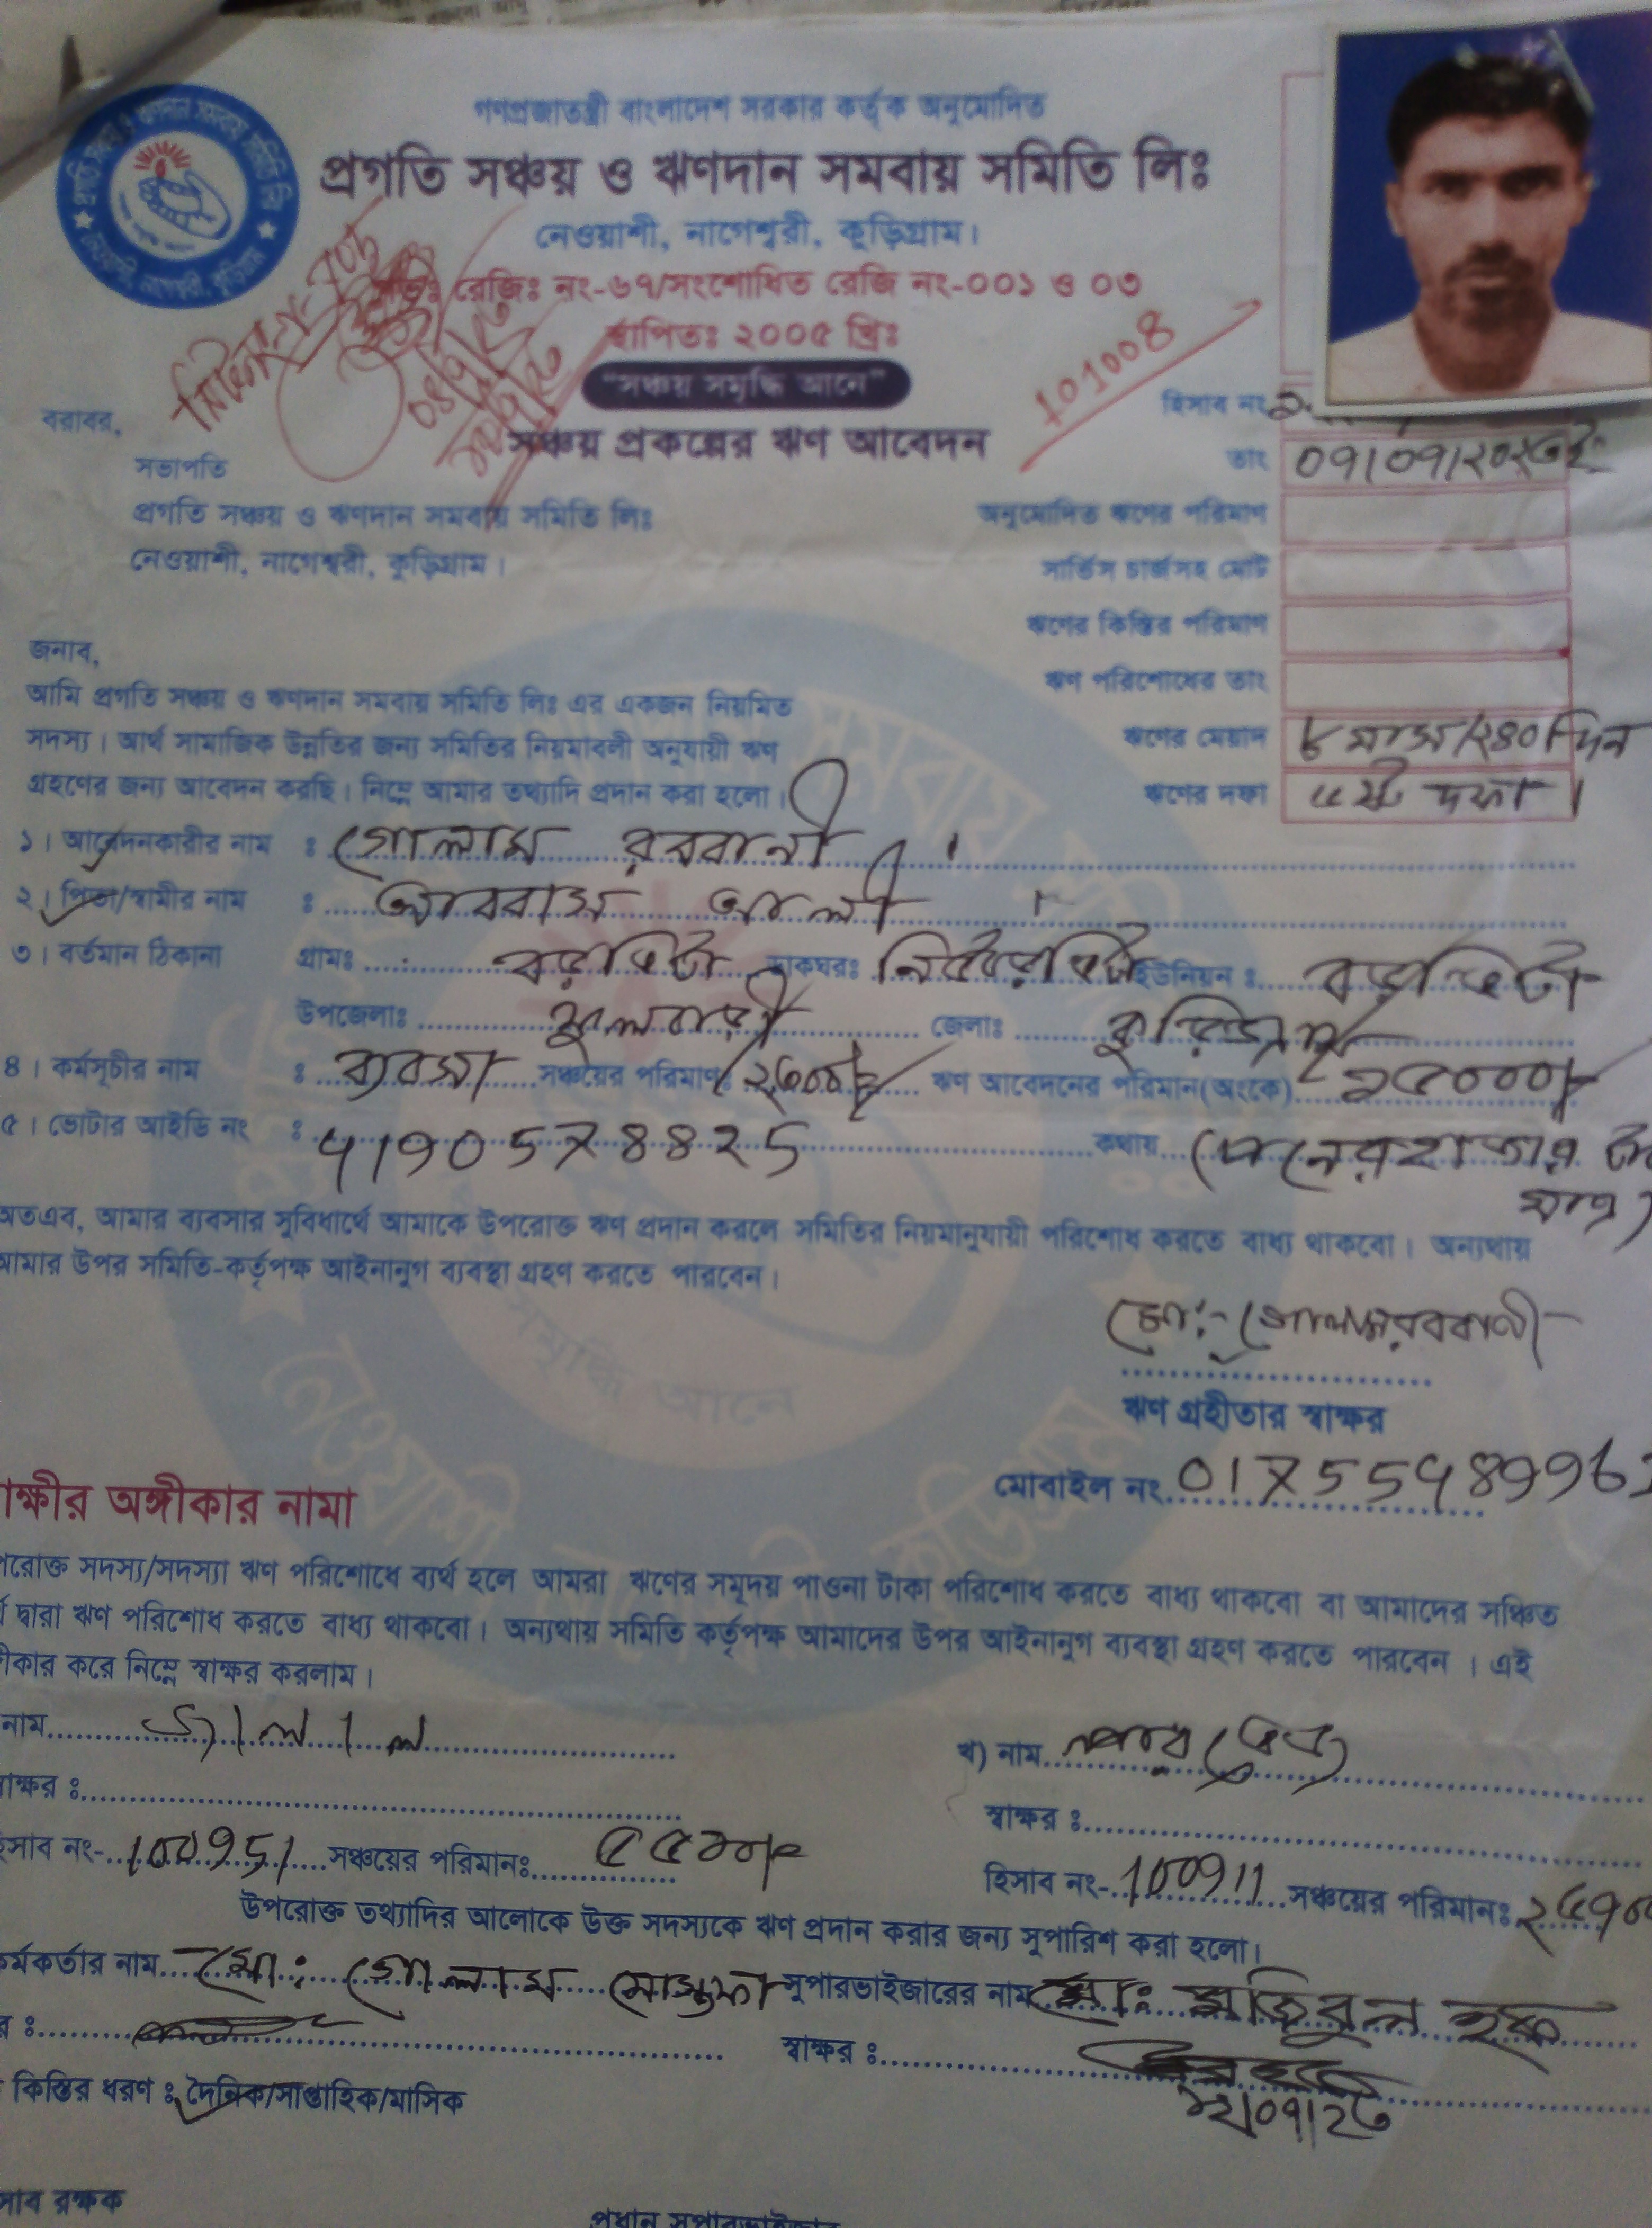 গণপ্রজাতন্ত্রী বাংলাদেশ সরকার কর্তৃক অনুমোদিত
প্রগতি সঞ্চয় ও ঋণদান সমবায় সমিতি লিঃ
নেওয়াশী, নাগেশ্বরী, কুড়িগ্রাম।
রেজিঃ নং-৬৭/সংশোধিত রেজি নং-০০১ ও ০৩
স্থাপিতঃ ২০০৫ খ্রিঃ
"সঞ্চয় সমৃদ্ধি আনে"
101008
হিসাব নং
বরাবর,
সঞ্চয় প্রকল্পের ঋণ আবেদন
তাং
সভাপতি
প্রগতি সঞ্চয় ও ঋণদান সমবায় সমিতি লিঃ
অনুমোদিত ঋণের পরিমাণ
নেওয়াশী, নাগেশ্বরী, কুড়িগ্রাম।
সার্ভিস চার্জসহ মোট
ঋণের কিস্তির পরিমাণ
জনাব,
ঋণ পরিশোধের তাং
আমি প্রগতি সঞ্চয় ও ঋণদান সমবায় সমিতি লিঃ এর একজন নিয়মিত
সদস্য। আর্থ সামাজিক উন্নতির জন্য সমিতির নিয়মাবলী অনুযায়ী ঋণ
ঋণের মেয়াদ ৮ মাস/২৪০ দিন
গ্রহণের জন্য আবেদন করছি। নিম্নে আমার তথ্যাদি প্রদান করা হলো।
ঋণের দফা দফা।
১। আবেদনকারীর নাম ঃ গোলাম রববানী
২। পিতা/স্বামীর নাম ঃ আববাস আলী
৩। বর্তমান ঠিকানা গ্রামঃ বড়ভিটা ডাকঘরঃ ইউনিয়ন ঃ বড়ভিটা
উপজেলাঃ ফুলবাড়ী জেলাঃ কুড়িগ্রাম
৪। কর্মসূচীর নাম ঃ ব্যবসা সঞ্চয়ের পরিমাণ ঋণ আবেদনের পরিমান(অংকে) ১৫০০০/=
৫। ভোটার আইডি নং ঃ 4190578825 কথায় (পনেরহাজার
মাত্র)
অতএব, আমার ব্যবসার সুবিধার্থে আমাকে উপরোক্ত ঋণ প্রদান করলে সমিতির নিয়মানুযায়ী পরিশোধ করতে বাধ্য থাকবো। অন্যথায়
আমার উপর সমিতি-কর্তৃপক্ষ আইনানুগ ব্যবস্থা গ্রহণ করতে পারবেন।
মো:- গোলাম রববানী
ঋণ গ্রহীতার স্বাক্ষর
মোবাইল নং
াক্ষীর অঙ্গীকার নামা
পরোক্ত সদস্য/সদস্যা ঋণ পরিশোধে ব্যর্থ হলে আমরা ঋণের সমূদয় পাওনা টাকা পরিশোধ করতে বাধ্য থাকবো বা আমাদের সঞ্চিত
দ্বারা ঋণ পরিশোধ করতে বাধ্য থাকবো। অন্যথায় সমিতি কর্তৃপক্ষ আমাদের উপর আইনানুগ ব্যবস্থা গ্রহণ করতে পারবেন। এই
ীকার করে নিম্নে স্বাক্ষর করলাম।
নাম জালাল
খ) নাম
াক্ষর ঃ
স্বাক্ষর ঃ
হিসাব নং- 100951 সঞ্চয়ের পরিমানঃ ৫৫০০/=
হিসাব নং- 100911 সঞ্চয়ের পরিমানঃ
উপরোক্ত তথ্যাদির আলোকে উক্ত সদস্যকে ঋণ প্রদান করার জন্য সুপারিশ করা হলো।
কর্মকর্তার নাম মো: গোলাম মোস্তফা সুপারভাইজারের নাম মো: মজিবুল হক
স্বাক্ষর ঃ
কিস্তির ধরণ ঃ দৈনিক/সাপ্তাহিক/মাসিক
সাব রক্ষক
প্রধান সুপারভাইজার